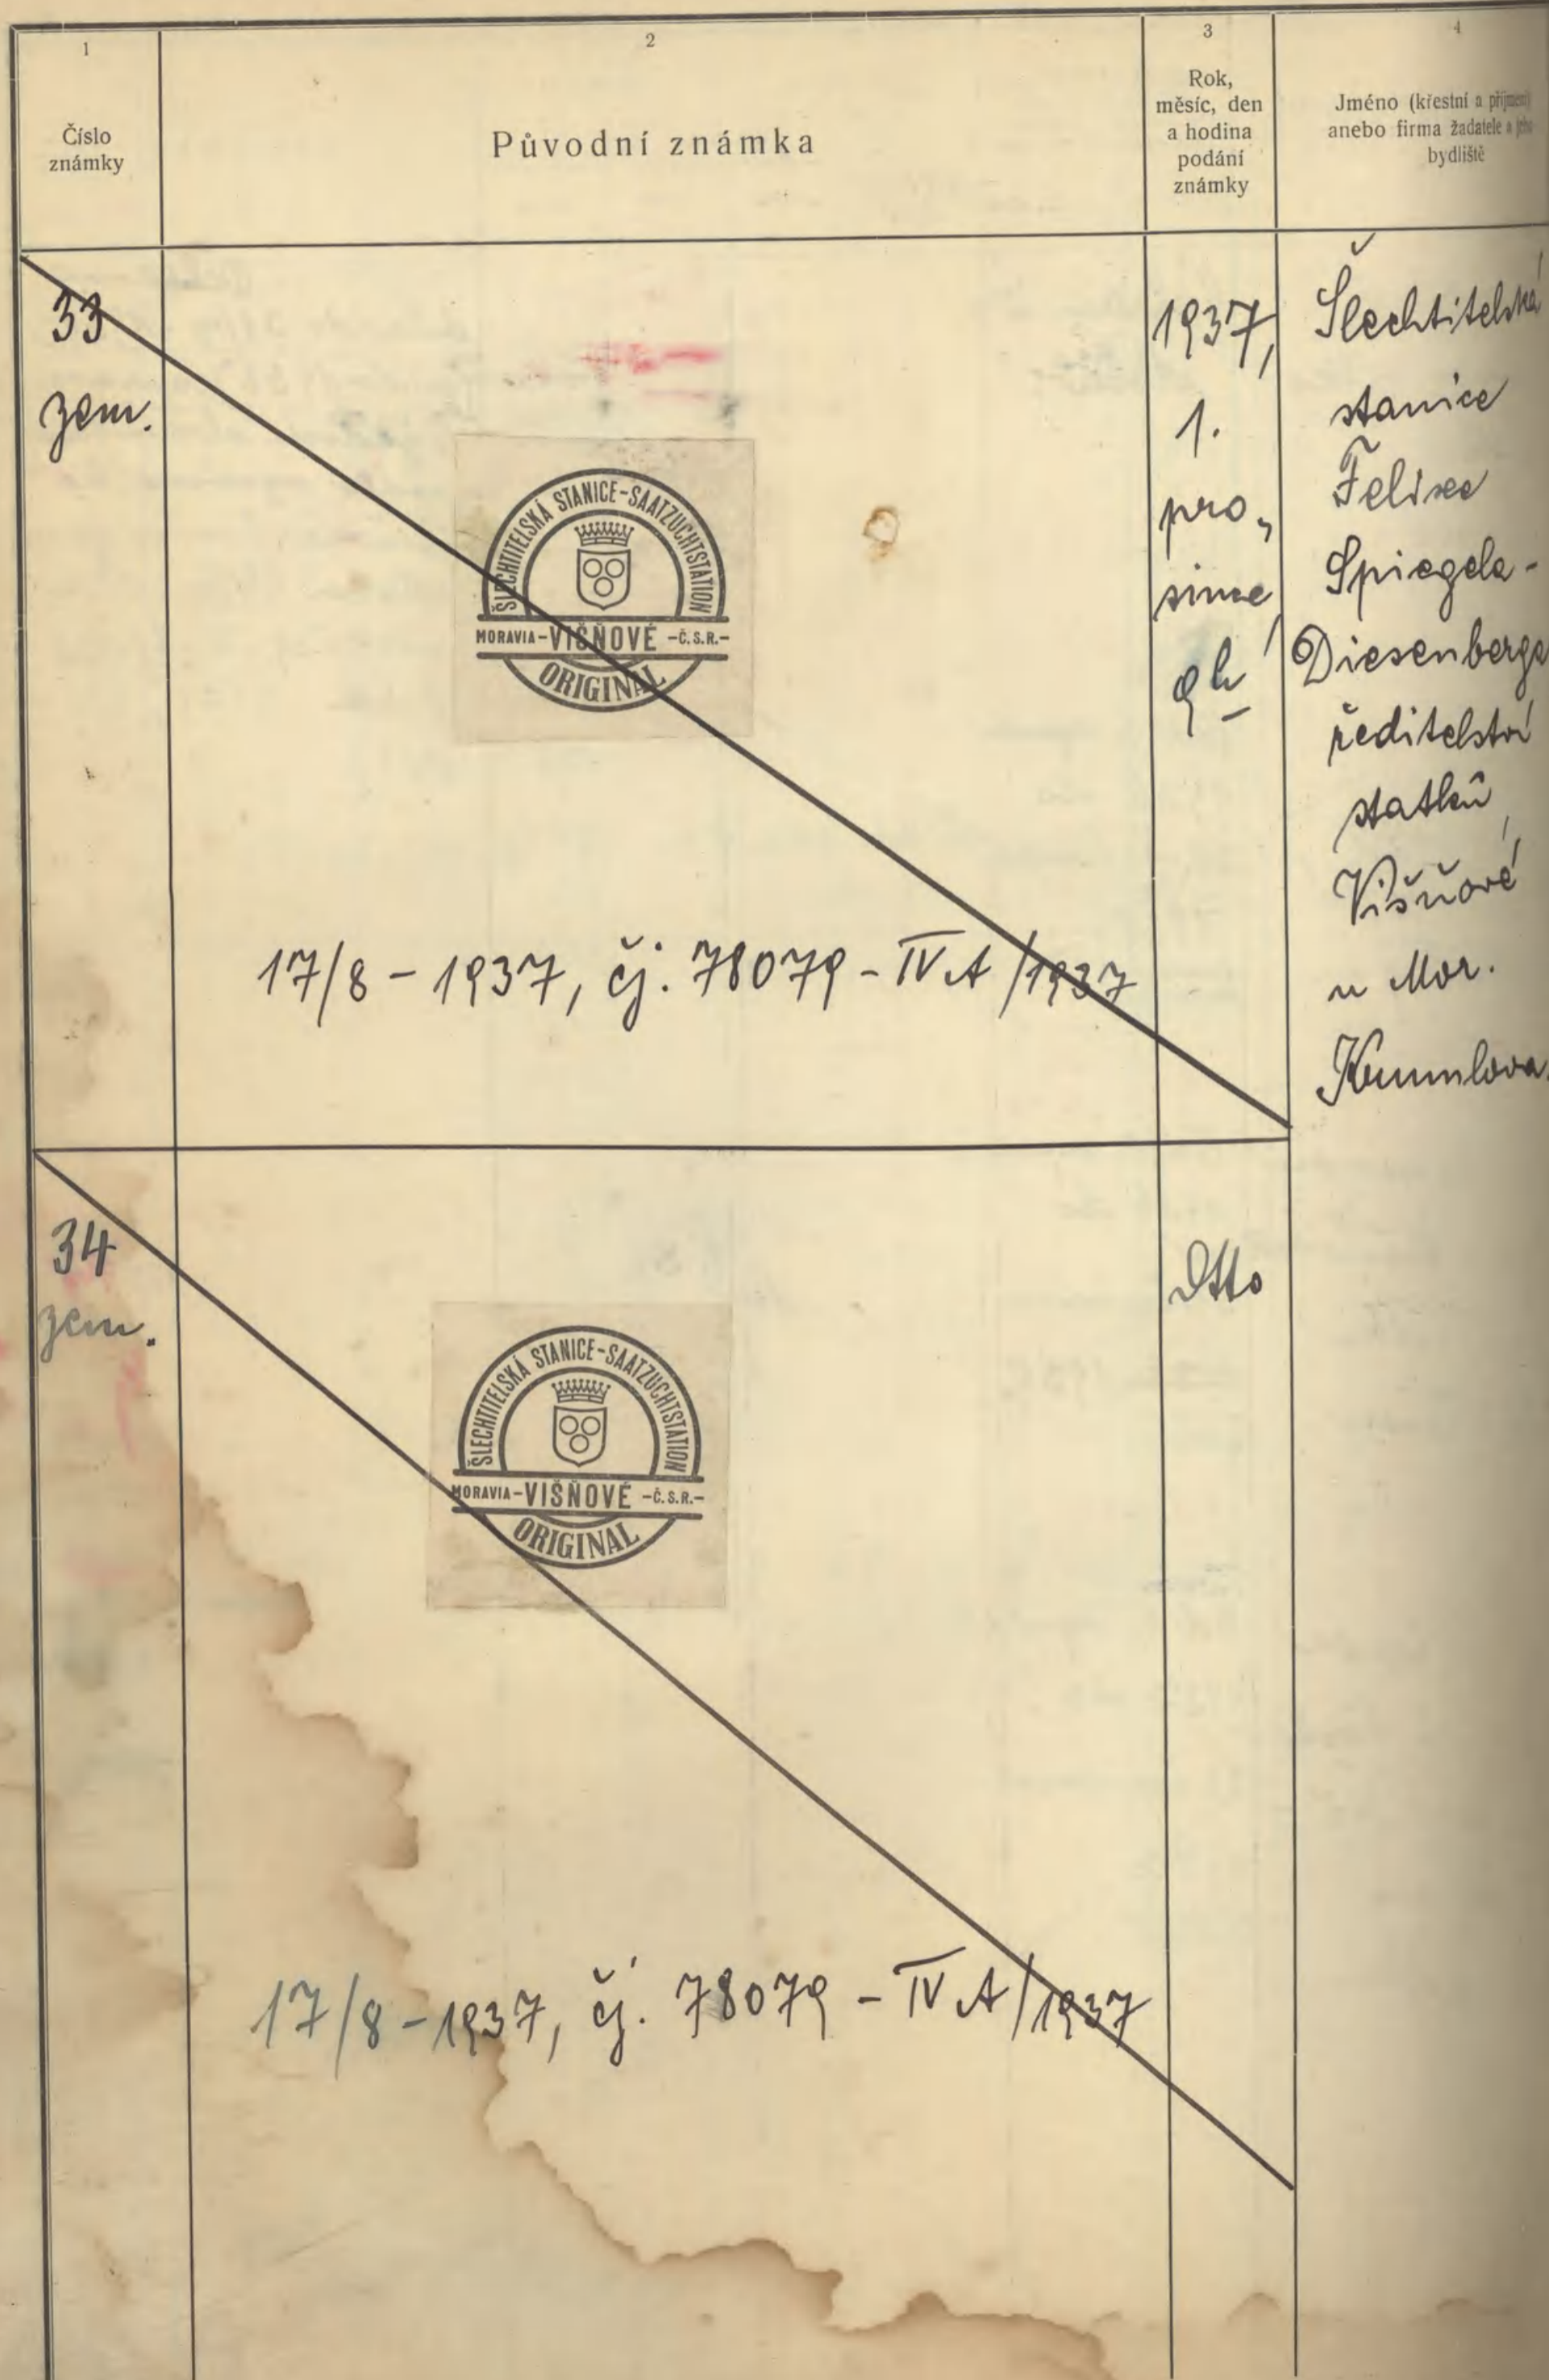 1
Číslo
známky
2
Původní známka
3
Rok,
měsíc, den
a hodina
podání
známky
4
Jméno (křestní a příjmení)
anebo firma žadatele a jeho
bydliště
33
zem.
ŠLECHTITELSKÁ STANICE-SAATZUCHTSTATION
MORAVIA-VIŠŇOVÉ-Č.S.R.-
ORIGINAL
17/8 - 1937, čj. 78079 - IV A/1937
1937,
1.
pro„
since
9h
Šlechtitelská
stanice
Felixe
Spiegela-
Diesenberga
ředitelství
statků,
Višňové
u Mor.
Krumlova.
34
zem.
ŠLECHTITELSKÁ STANICE-SAATZUCHTSTATION
MORAVIA-VIŠŇOVÉ-Č.S.R.-
ORIGINAL
17/8 - 1937, čj. 78079 - IV A/1937
Dtto